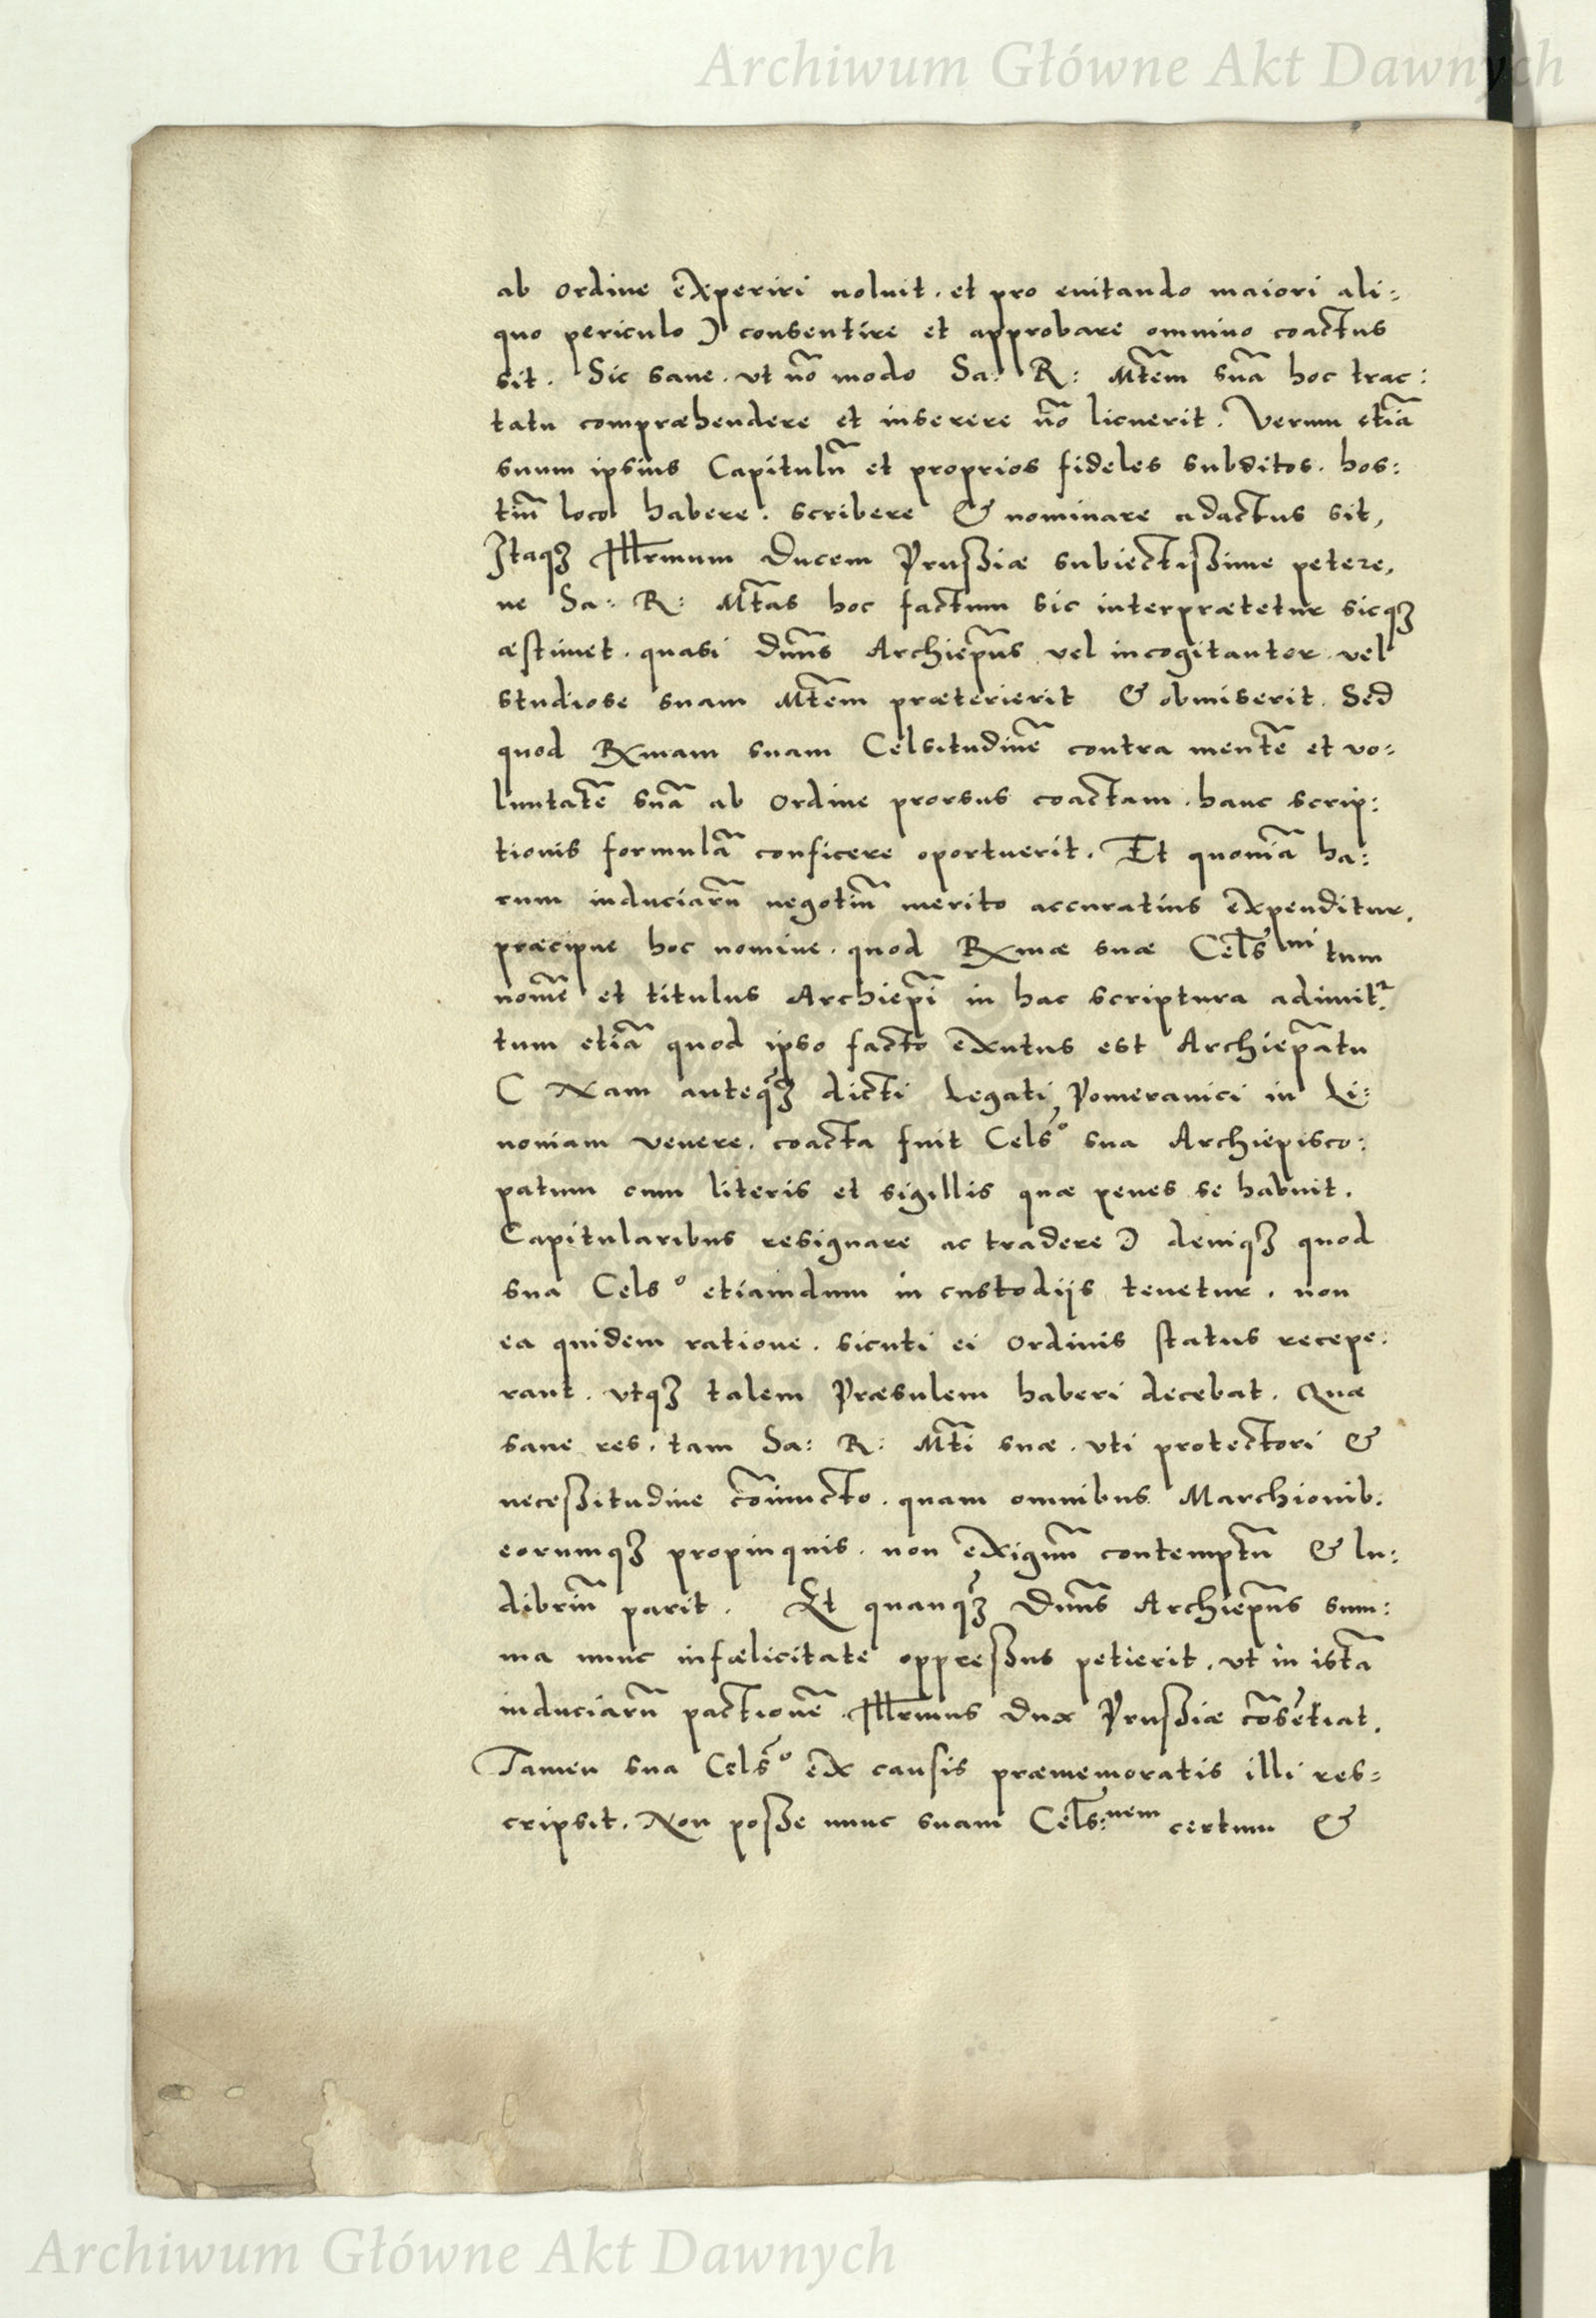 Archiwum Główne Akt Dawnych
ab ordine experiri noluit. et pro euitando maiori ali:
quo periculo ) consentire et approbare omnino coactus
sit. Sic sane. vt nō modo Sa: R: Mtem suā hoc trac:
tatu compræhendere et inserere nō licuerit. Verum etiā
suum ipsius Capitulū et proprios fideles subditos. hos:
tiū loco habere. scribere & nominare adactus sit,
Itaqꝫ Illrmum Ducem Prußiæ subiectißime petere,
ne Sa: R: Mtas hoc factum sic interprætetur sicqꝫ
æstimet. quasi Dnūs Archiepūs vel incogitanter vel
studiose suam Mtem præterierit & obmiserit. Sed
quod Rxmam suam Celsitudinē contra mentē et vo:
luntatē suā ab ordine prorsus coactam. hanc scrip:
tionis formulā conficere oportuerit. Et quoniā ha:
rum induciarū negotiū merito accuratius expenditur.
præcipue hoc nomine. quod Rxmæ suæ Cels ni tum
nomē et titulus Archiepī in hac scriptura adimitr.
tum etiā quod ipso facto exutus est Archiepātu
( Nam anteqꝫ dicti Legati Pomeranici in Li:
uoniam venere. coacta fuit Cels° sua Archiepisco:
patum cum literis et sigillis quæ penes se habuit.
Capitularibus resignare ac tradere ) deniqꝫ quod
sua Cels° etiamdum in custodijs tenetur. non
ea quidem ratione. sicuti ei ordinis status recepe:
rant. vtqꝫ talem Præsulem haberi decebat. Quæ
sane res. tam Sa: R: Mti suæ. vti protectori &
neceßitudine cōiuncto. quam omnibus Marchionib.
eorumqꝫ propinquis. non exiguū contemptū & lu:
dibriū parit. Et quanqꝫ Dnūs Archiepūs sum:
ma nunc infœlicitate oppreßus petierit. vt in istā
induciarū pactionē. Illrmus Dux Prußiæ cōsētiat.
Tamen sua Cels° ex causis præmemoratis illi res=
cripsit. Non poße nunc suam Cels:nem certum &
Archiwum Główne Akt Dawnych